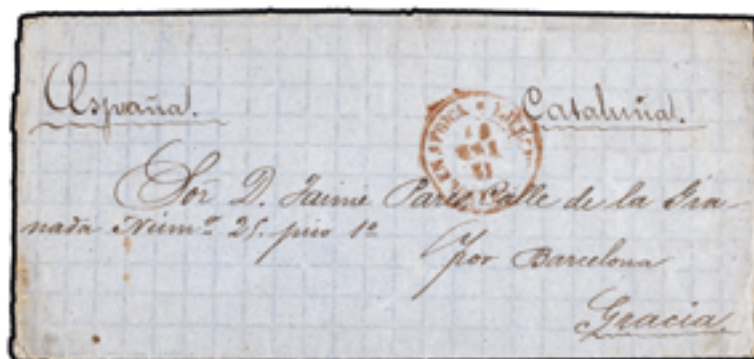 España. Cataluña.
Sor D. Jaime Parés Calle de la Gra-
nada Núm.º 25. piso 1º
por Barcelona
Gracia